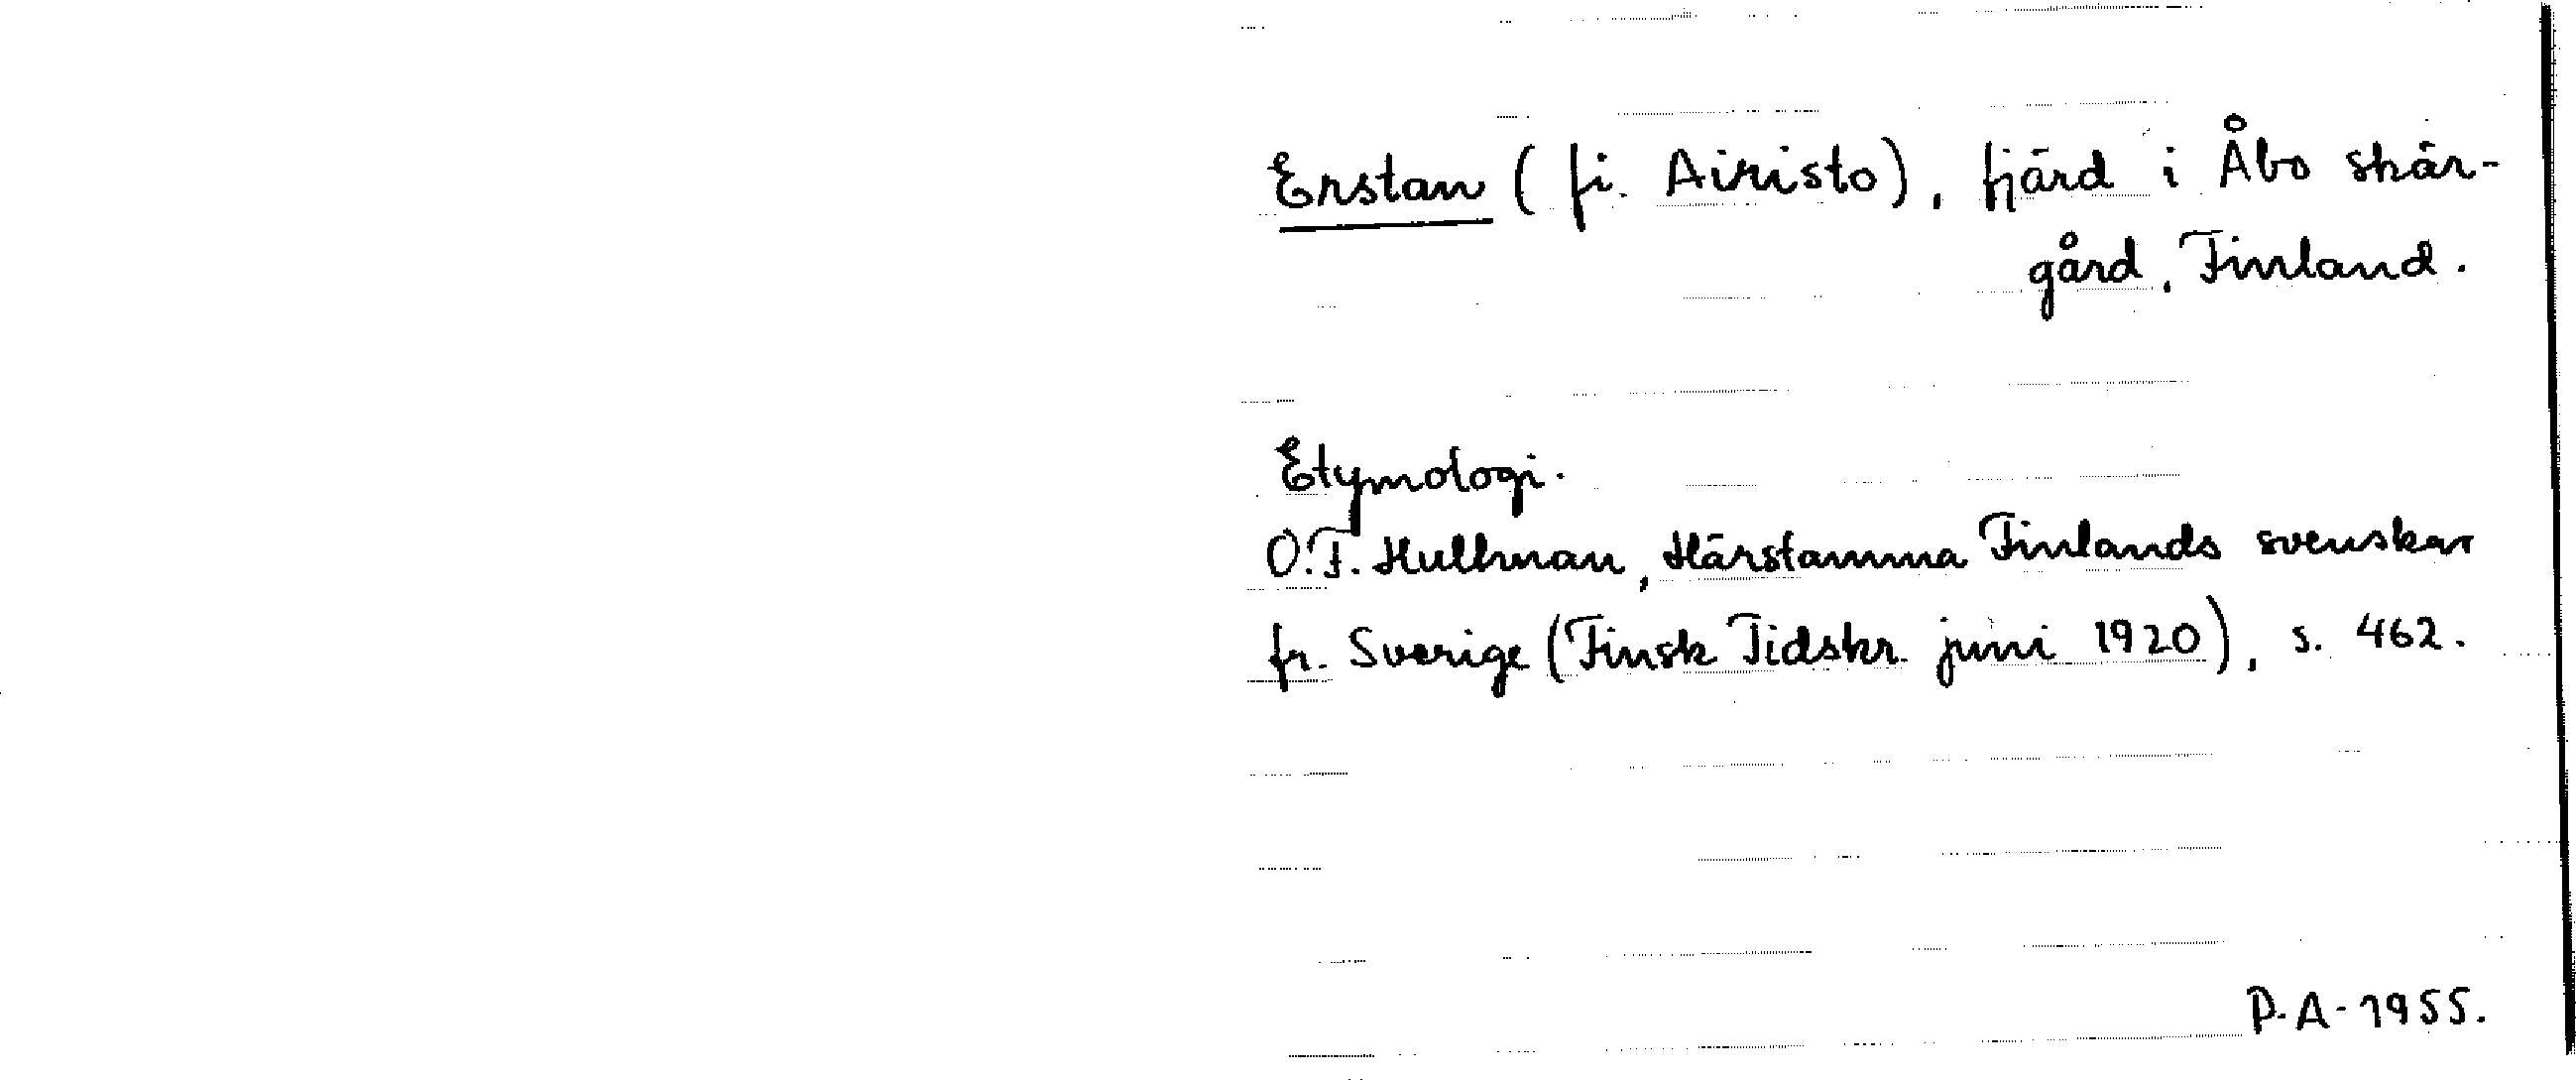 Erstan (fi. Airisto), fjärd i Åbo skär-
gård, Finland.
Etymologi.
O.F. Hultman, Härstamma Finlands svenskar
fr. Sverige (Finsk Tidskr. juni 1920), s. 462.
P.A. 1955.